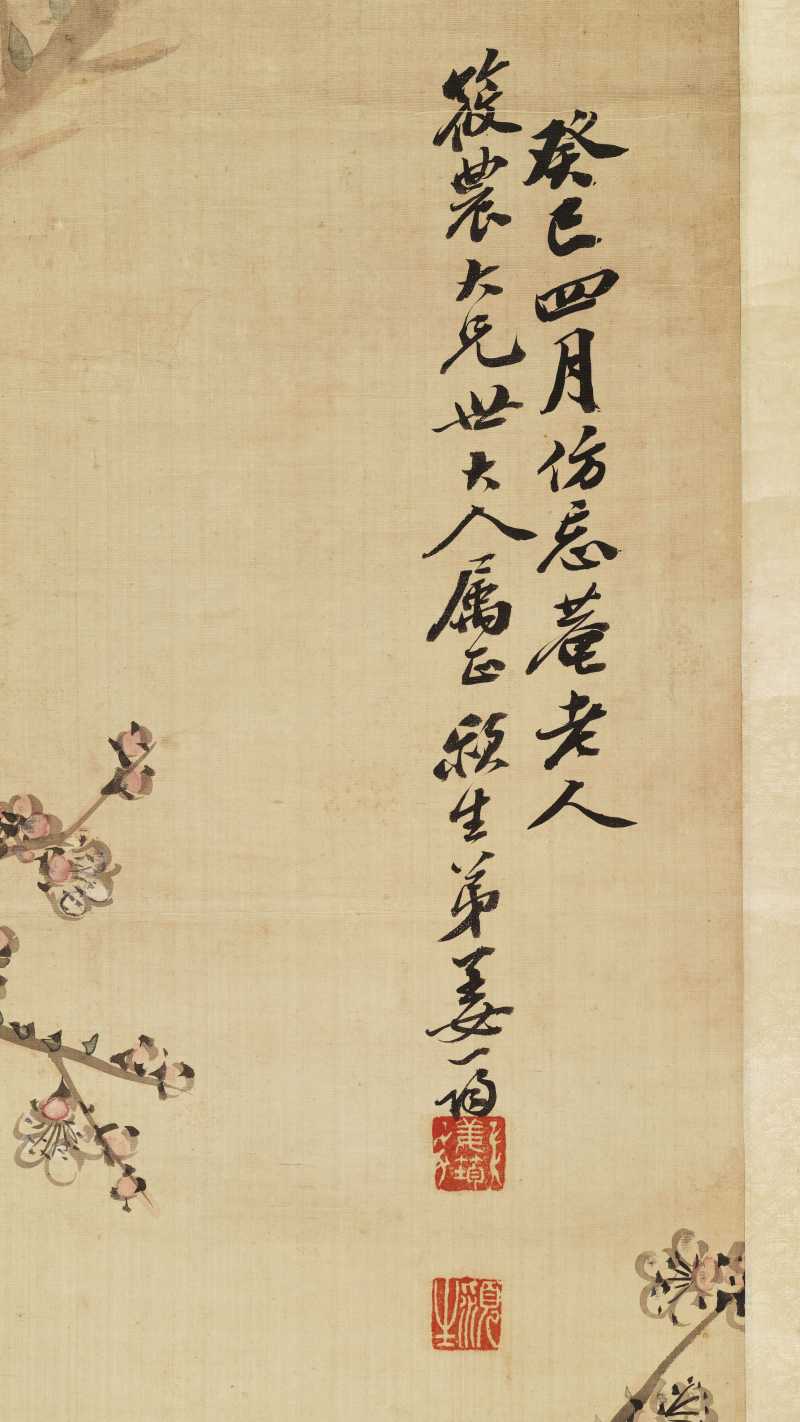 癸巳四月仿忘菴老人
筱農大兄世大人属正 穎生弟姜筠